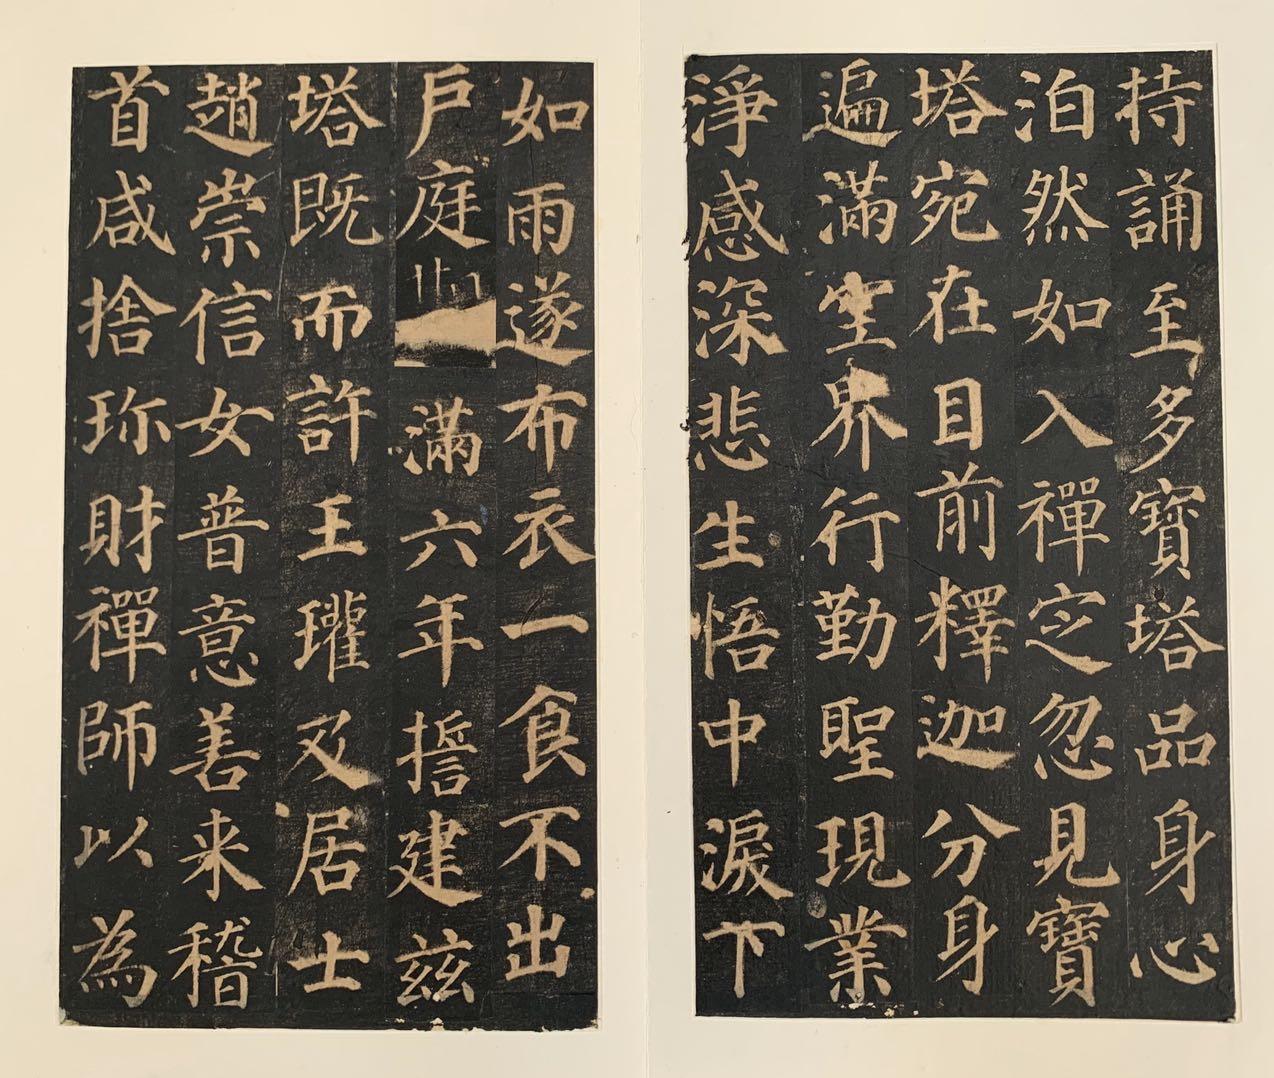 持誦至多寶塔品身心
泊然如入禪定忽見寶
塔宛在目前釋迦分身
遍滿空界行勤聖現業
淨感深悲生悟中淚下
如雨遂布衣一食不出
戶庭 滿六年誓建茲
塔既而許王瓘及居士
趙崇信女普意善来稽
首咸捨珎財禪師以為